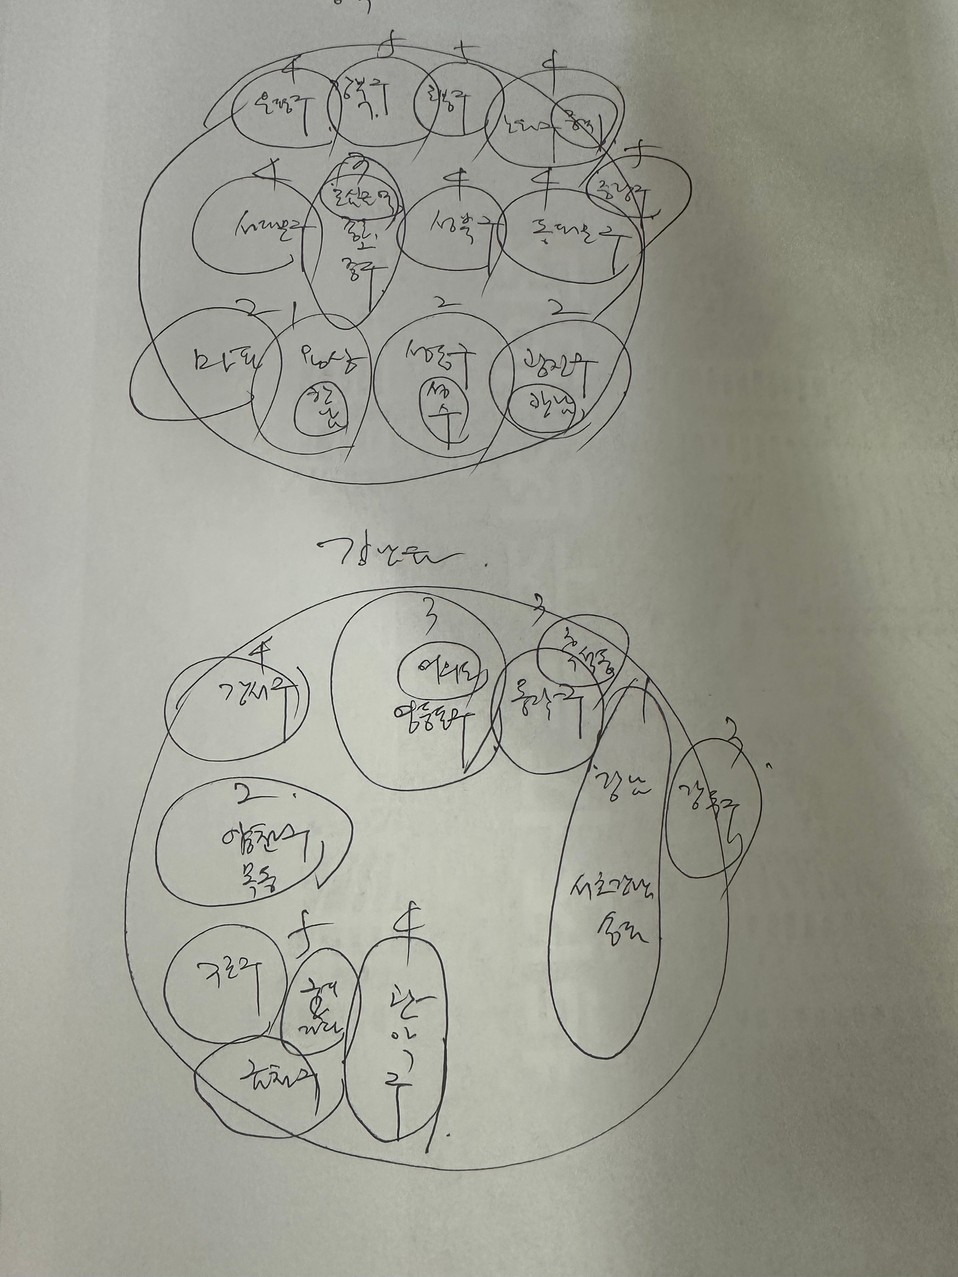 4
5
5
4
은평구
강북구
도봉구
노원구
중랑구
5
4
3
4
4
서대문구
종로
중구
성북구
동대문구
2
1
2
2
마포
용산
한남
성동구
성수
광진구
강남권
4
강서구
3
여의도
영등포구
3
흑석동
동작구
1
강남
서초강남
송파
3
강동구
2
양천구
목동
구로구
5
4
관
악
구
금천구